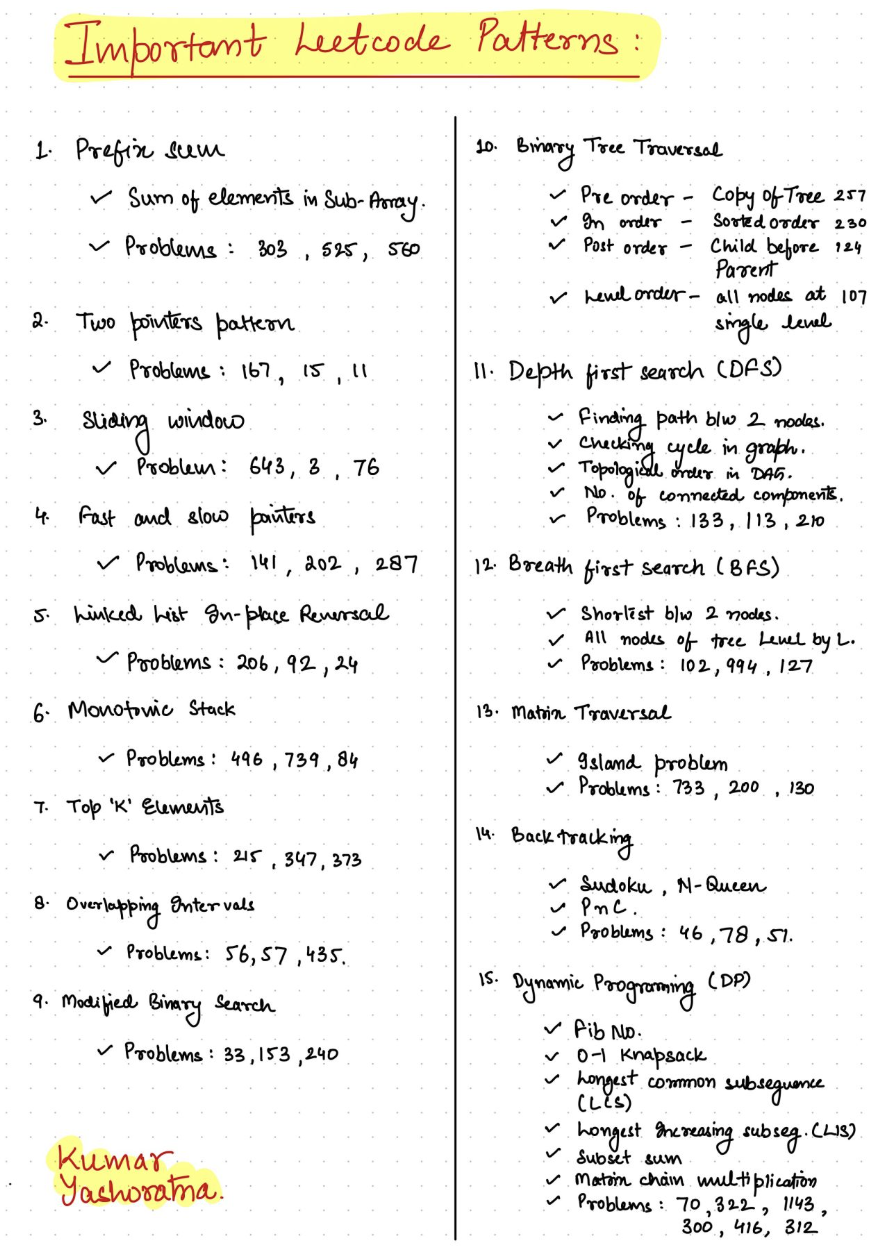 Important Leetcode Patterns :
1. Prefix sum
✓ Sum of elements in Sub-Array.
✓ Problems : 303 , 525, 560
2. Two pointers pattern
✓ Problems : 167, 15 , 11
3. Sliding window
✓ Problem : 643, 3 , 76
4. Fast and slow pointers
✓ Problems : 141 , 202 , 287
5. Linked List In-place Reversal
✓ Problems : 206, 92 , 24
6. Monotonic Stack
✓ Problems : 496 , 739 , 84
7. Top 'K' Elements
✓ Problems : 215 , 347, 373
8. Overlapping Intervals
✓ Problems: 56, 57 , 435.
9. Modified Binary Search
✓ Problems : 33, 153 , 240
Kumar
Yashoratna.
10. Binary Tree Traversal
✓ Pre order - Copy of Tree 257
✓ In order - Sorted order 230
✓ Post order - Child before 124
Parent
✓ Level order - all nodes at 107
single level
11. Depth first search (DFS)
✓ Finding path b/w 2 nodes.
✓ Checking cycle in graph.
✓ Topological order in DAG.
✓ No. of connected components.
✓ Problems : 133, 113, 210
12. Breath first search (BFS)
✓ Shortest b/w 2 nodes.
✓ All nodes of tree Level by L.
✓ Problems : 102, 994 , 127
13. Matrix Traversal
✓ Island problem
✓ Problems : 733 , 200 , 130
14. Back tracking
✓ Sudoku , N-Queen
✓ PnC.
✓ Problems : 46 , 78 , 51.
15. Dynamic Programing (DP)
✓ Fib No.
✓ 0-1 Knapsack
✓ Longest common subsequence
(LCS)
✓ Longest Increasing subseq. (LIS)
✓ Subset sum
✓ Matrix chain multiplication
✓ Problems : 70 , 322 , 1143 ,
300 , 416, 312